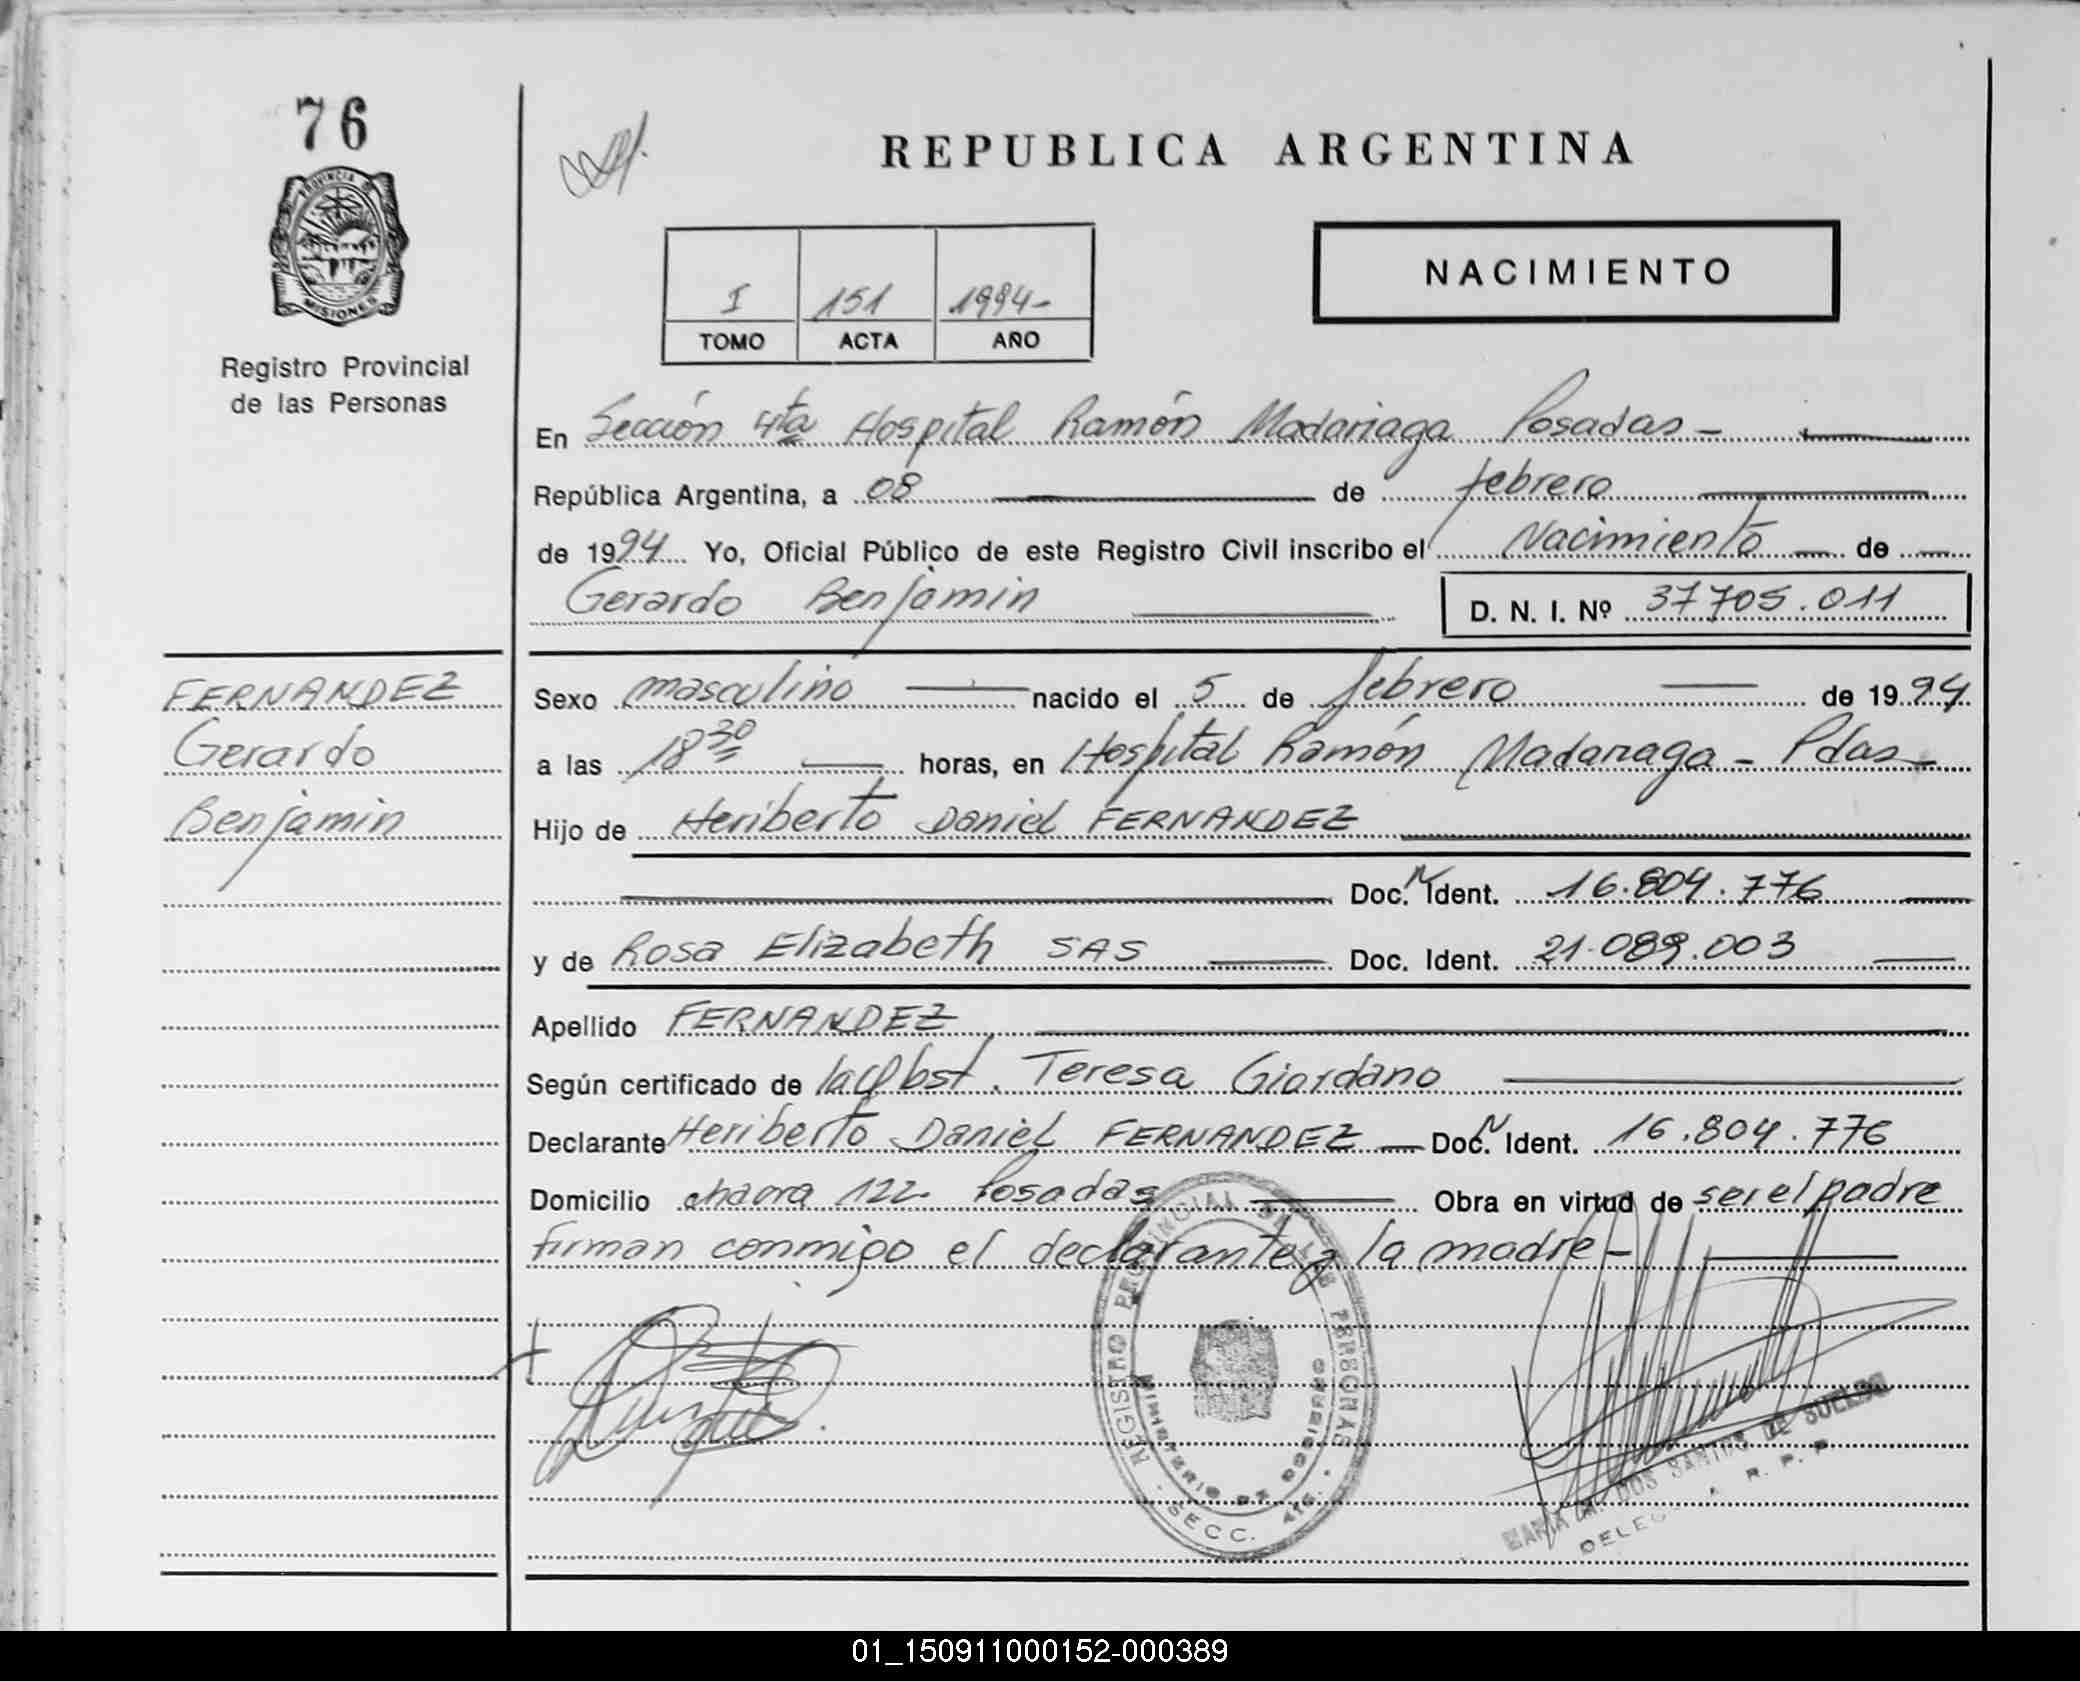 76
PROVINCIA D
MISIONES
Registro Provincial
de las Personas
REPUBLICA ARGENTINA
NACIMIENTO
I 151 1994-
TOMO ACTA AÑO
En Sección 4ta Hospital Ramón Madariaga Posadas -
República Argentina, a 08 de febrero
de 1994 Yo, Oficial Público de este Registro Civil inscribo el Nacimiento de
Gerardo Benjamin D. N. I. Nº 37705.011
FERNANDEZ
Gerardo
Benjamin
Sexo masculino nacido el 5 de febrero de 1994
a las 18 30 horas, en Hospital Ramón Madariaga - Pdas -
Hijo de Heriberto Daniel FERNANDEZ
Doc. N Ident. 16.804.776
y de Rosa Elizabeth SAS Doc. Ident. 21.089.003
Apellido FERNANDEZ
Según certificado de la Obst. Teresa Giordano
Declarante Heriberto Daniel FERNANDEZ Doc. N Ident. 16.804.776
Domicilio chacra 122. Posadas Obra en virtud de ser el padre
firman conmigo el declarante y la madre -
REGISTRO PROVINCIAL DE LAS PERSONAS
MINISTERIO DE GOBIERNO
SECC. 4TA.
MARIA DOS SANTOS DE SUELDO
R. P. P.
01_150911000152-000389